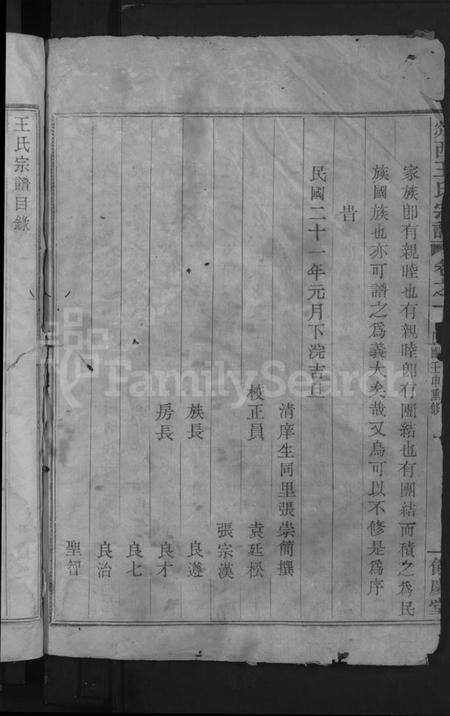 王氏宗譜
卷之一
壬申重修
家族卽有親睦也有親睦卽有團結也有團結而積之為民
族國族也亦可譜之為義大矣哉又烏可以不修是為序
旹
民國二十一年元月下浣吉旦
清庠生同里張崇簡撰
校正員 袁廷松
張宗漢
族長 良遵
房長 良才
良七
良治
聖智
王氏宗譜目錄
FamilySearch